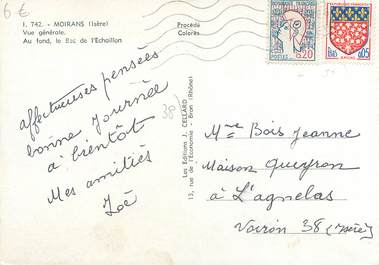 6 €
I. 742. - MOIRANS (Isère)
Vue générale.
Au fond, le Bec de l'Echaillon
Procédé
Colorès
0,20
REPUBLIQUE FRANÇAISE
0,05
AMIENS
affectueuses pensées
bonne journée
à bientôt
Mes amitiés
Zoé
38
Les Editions J. CELLARD
13, rue de l'Economie - Bron (Rhône)
Mme Bois Jeanne
Maison Queyron
à L'agnelas
Voiron 38 (Isère)